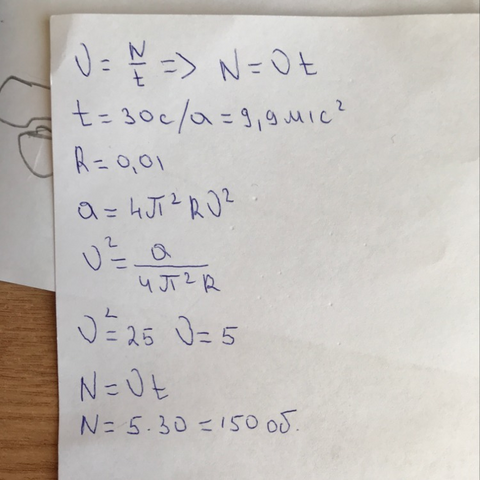 ν = N/t => N = νt
t = 30с/a = 9,9 м/с²
R = 0,01
a = 4π²Rν²
ν² = a/4π²R
ν² = 25 ν = 5
N = νt
N = 5·30 = 150 об.